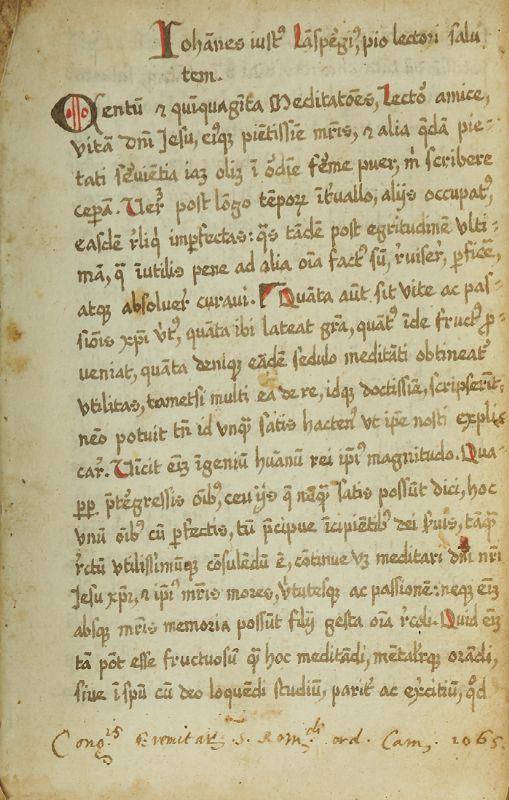 Johānes iust⁹ Lāspęgi⁹, pio lectori salu
tem.
Centū & quīquagīta Meditatōes, Lectoʳ amice,
vitā dnī Jesu, ei⁹qꝫ piētissīe mr̄is, & alia qdā pie-
tati sēvientia iaꝫ olīꝫ ī ordīe ferme puer, m̄ scribere
cepꝛā. Ver post lōgo tēporꝫ īt̄uallo, alijs occupat⁹,
easdē rlīq imꝑfectas: q̄s tādē post egritudinē vlti-
mā, q̄ īutilis pene ad alia oīa fact⁹ sū, ꝑficēē,
atqꝫ absoluer̄ curavi. Quāta aūt sit vite ac pas-
sionis xp̄i v̄t⁹, quāta ibi lateat gr̄a, quāt⁹ īde fruct⁹ ꝓ
veniat, quāta deniqꝫ eādē sedulo meditāti obtineat᷑
vtilitas, tametsi multi ea de re, idqꝫ doctissīe, scripserīt-
nēo potuit tn̄ id vnq̄ satis hacten⁹ vt ip̄e nosti explis
car̄. Vīcit eīꝫ īgeniū huānū rei ip̄i⁹ magnitudo. Qua
ꝓpꝓ p̄tegressis oīb⁹, ceu ijs q̄ nūq̄ satis possūt dici, hoc
vnū oīb⁹ cū ꝑfectis, tū p̄cipue īcipiētib⁹ dei s̄uis, tāq̄
rctū vtilissimūqꝫ cōsulēdū ē, cōtinue vꝫ meditari dnī nr̄i
Jesu xpī, & ip̄i⁹ mr̄is mores, v̄tutesqꝫ ac passionē: neqꝫ eīꝫ
absqꝫ mr̄is memoria possūt filij gesta oīa rcoli. Quid eīꝫ
tā pōt esse fructuosū q̄ hoc meditādi, mētalrqꝫ orādi,
siue ī spū cū deo loquēdi studiū, parit᷑ ac exercitiū, qd
Congⁱˢ Eremitar. S. Romᵈⁱ ord. Cam, 1065.